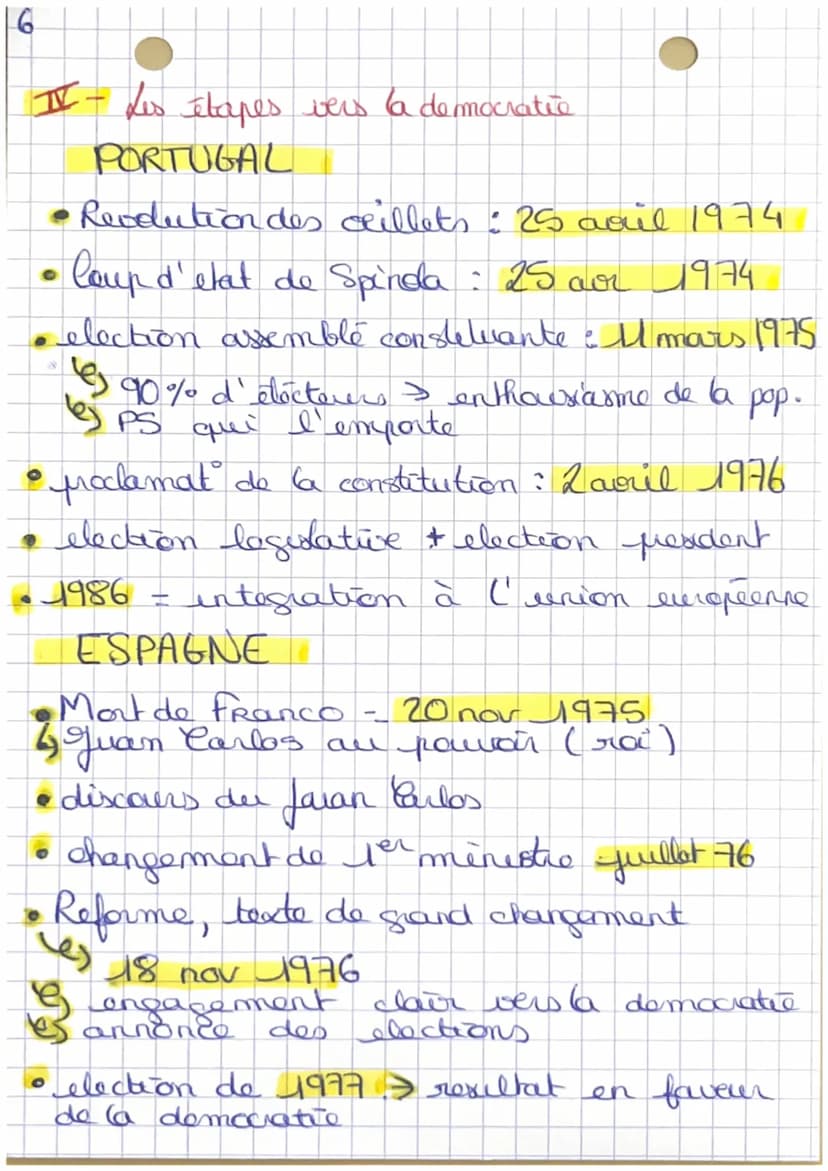 6
IV - Les étapes vers la democratie
PORTUGAL
• Revolution des œillets : 25 avril 1974
• Coup d'etat de Spinola : 25 avr 1974
• election assemblé constituante : 11 mars 1975
↳ 90% d'électeurs → enthousiasme de la pop.
↳ PS qui l'emporte
• proclamat° de la constitution : 2 avril 1976
• election legislative + election president
• 1986 = integration à l'union européenne
ESPAGNE
• Mort de FRANCO - 20 nov 1975
↳ Juan Carlos au pouvoir (roi)
• discours du Juan Carlos
• changement de 1er ministre juillet 76
• Reforme, texte de grand changement
↳ 18 nov 1976
↳ engagement clair vers la democratie
↳ annonce des elections
• election de 1977 → resultat en faveur
de la democratie